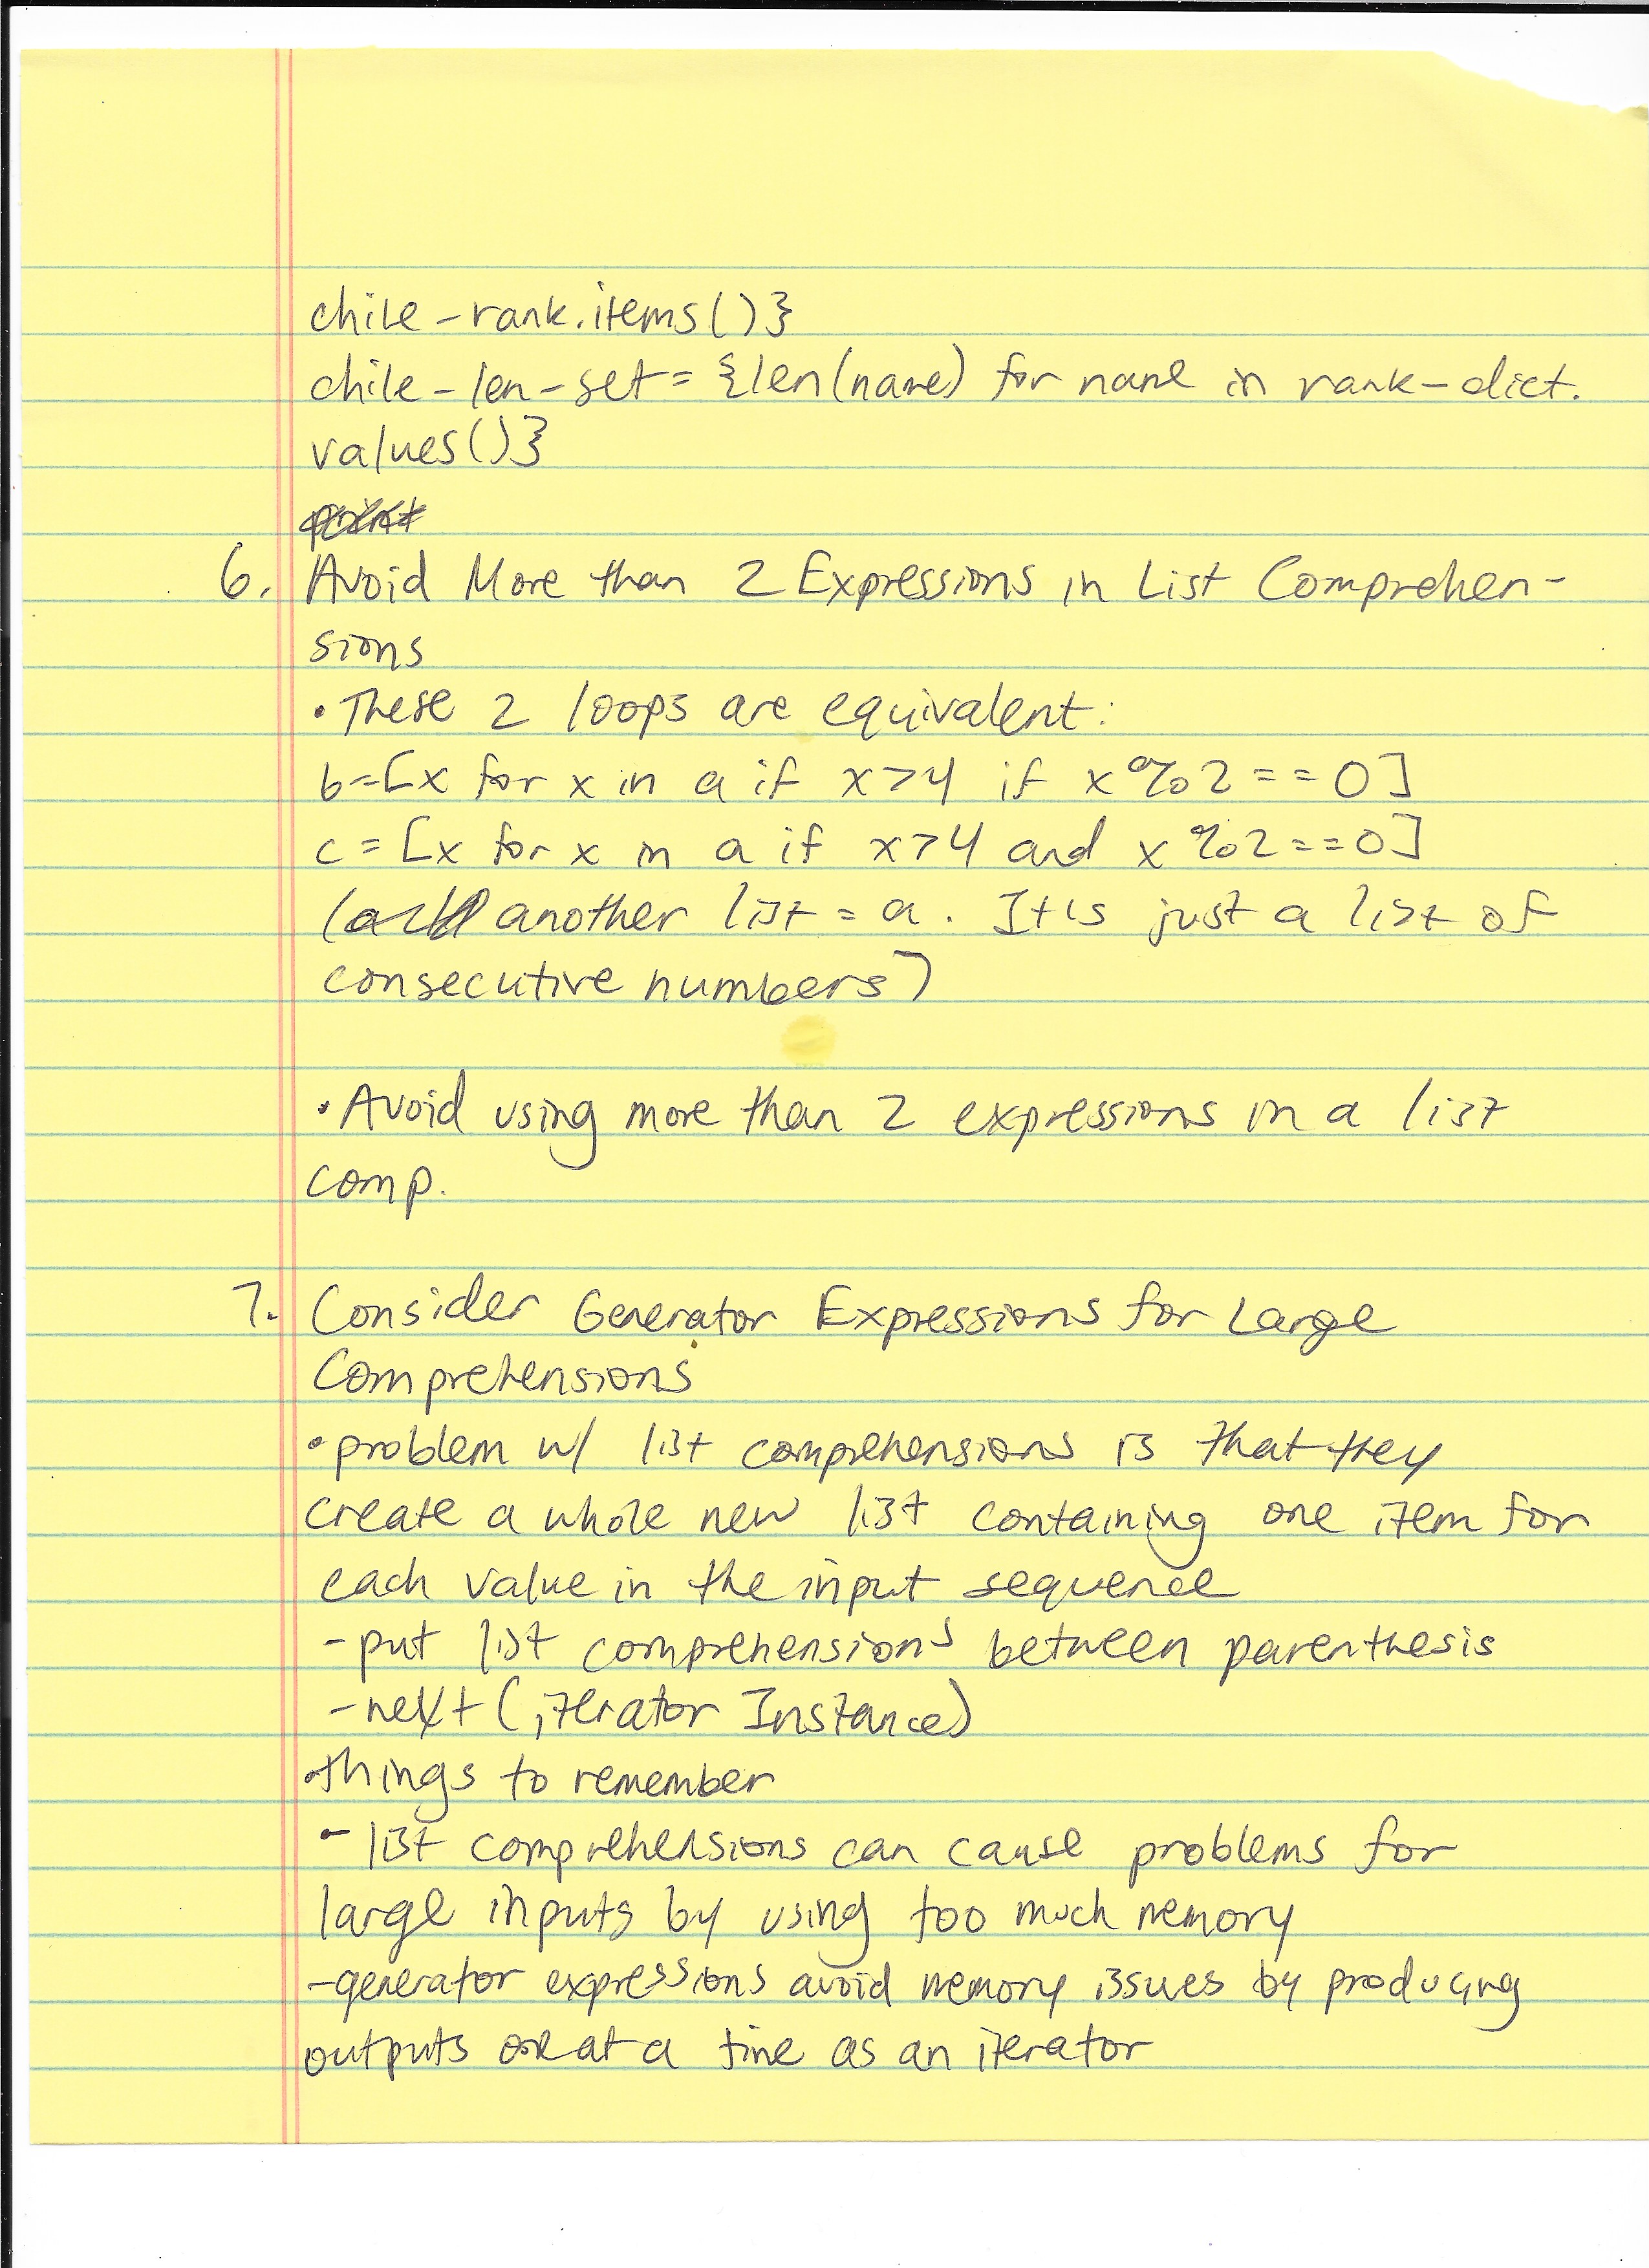 chile-rank.items()}
chile-len-set = {len(name) for name in rank-dict.
values()}
print
6. Avoid More than 2 Expressions in List Comprehen-
sions
• These 2 loops are equivalent:
b=[x for x in a if x>4 if x%2==0]
c = [x for x in a if x>4 and x%2==0]
( another list = a. It is just a list of
consecutive numbers)
• Avoid using more than 2 expressions in a list
comp.
7. Consider Generator Expressions for Large
Comprehensions
• problem w/ list comprehensions is that they
create a whole new list containing one item for
each value in the input sequence
- put list comprehensions between parenthesis
- next (iterator Instance)
• things to remember
- list comprehensions can cause problems for
large inputs by using too much memory
- generator expressions avoid memory issues by producing
outputs one at a time as an iterator